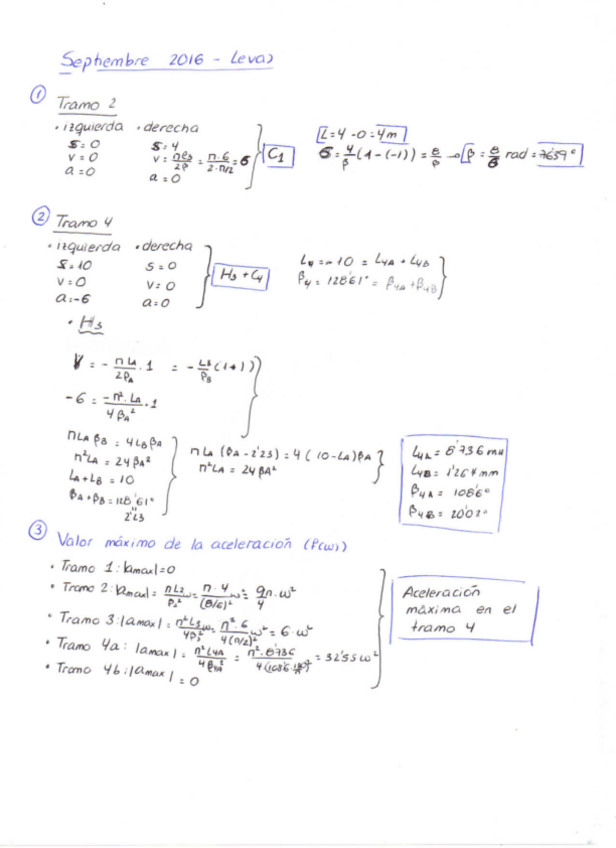 Septiembre 2016 - Levas
① Tramo 2
• izquierda • derecha
s=0 s=4
v=0 v= πL3/2β = π·6/2·π/2 = 6
a=0 a=0
C1
L=4-0=4m
6=4/β(1-(-1))=8/β → β=8/6 rad=76'39°
② Tramo 4
• izquierda • derecha
s=10 s=0
v=0 v=0
a=-6 a=0
H3 + C4
L4=-10 = L4A + L4B
β4=128'61° = β4A+β4B
• H3
V = - π LA/2βA · 1 = - LB/βB (1+1)
-6 = -π²·LA/4βA² · 1
π LA βB = 4 LB βA
π² LA = 24 βA²
LA + LB = 10
βA + βB = 128'61°
2'23
π LA (βA - 2'23) = 4 (10-LA) βA
π² LA = 24 βA²
L4A = 8'736 mm
L4B = 1'264 mm
β4A = 108'6°
β4B = 20'02°
③ Valor máximo de la aceleración (P(w))
• Tramo 1: |amax|=0
• Tramo 2: |amax|= πL2/β2² w² = π·4/(8/6)² w² = 9π/4 · w²
• Tramo 3: |amax| = π²L3/4β3² w² = π²·6/4(π/2)² w² = 6·w²
• Tramo 4a: |amax| = π²L4A/4β4A² = π²·8'736/4(108'6·π/180)² = 32'55 w²
• Tramo 4b: |amax| = 0
Aceleración
máxima en el
tramo 4